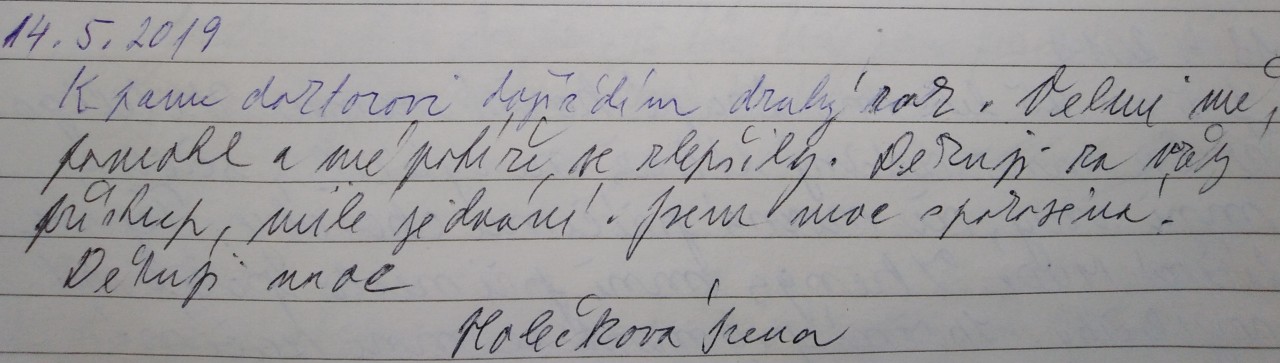 14. 5. 2019
K panu doktorovi dojíždím druhý rok. Velmi mě
pomohl a mé potíže se zlepšily. Děkuji za váš
přístup, milé jednání. Jsem moc spokojená.
Děkuji moc
Holečková Irena